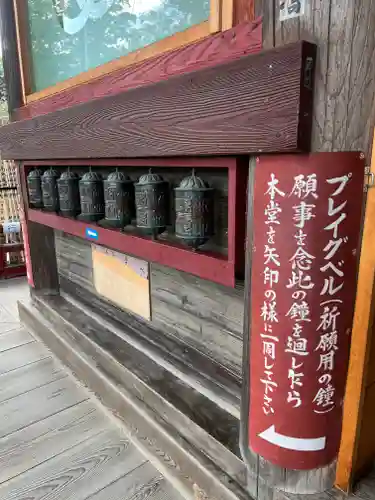 プレイグベル(祈願用の鐘)
願事を念じ此の鐘を廻しながら
本堂を矢印の様に一周して下さい